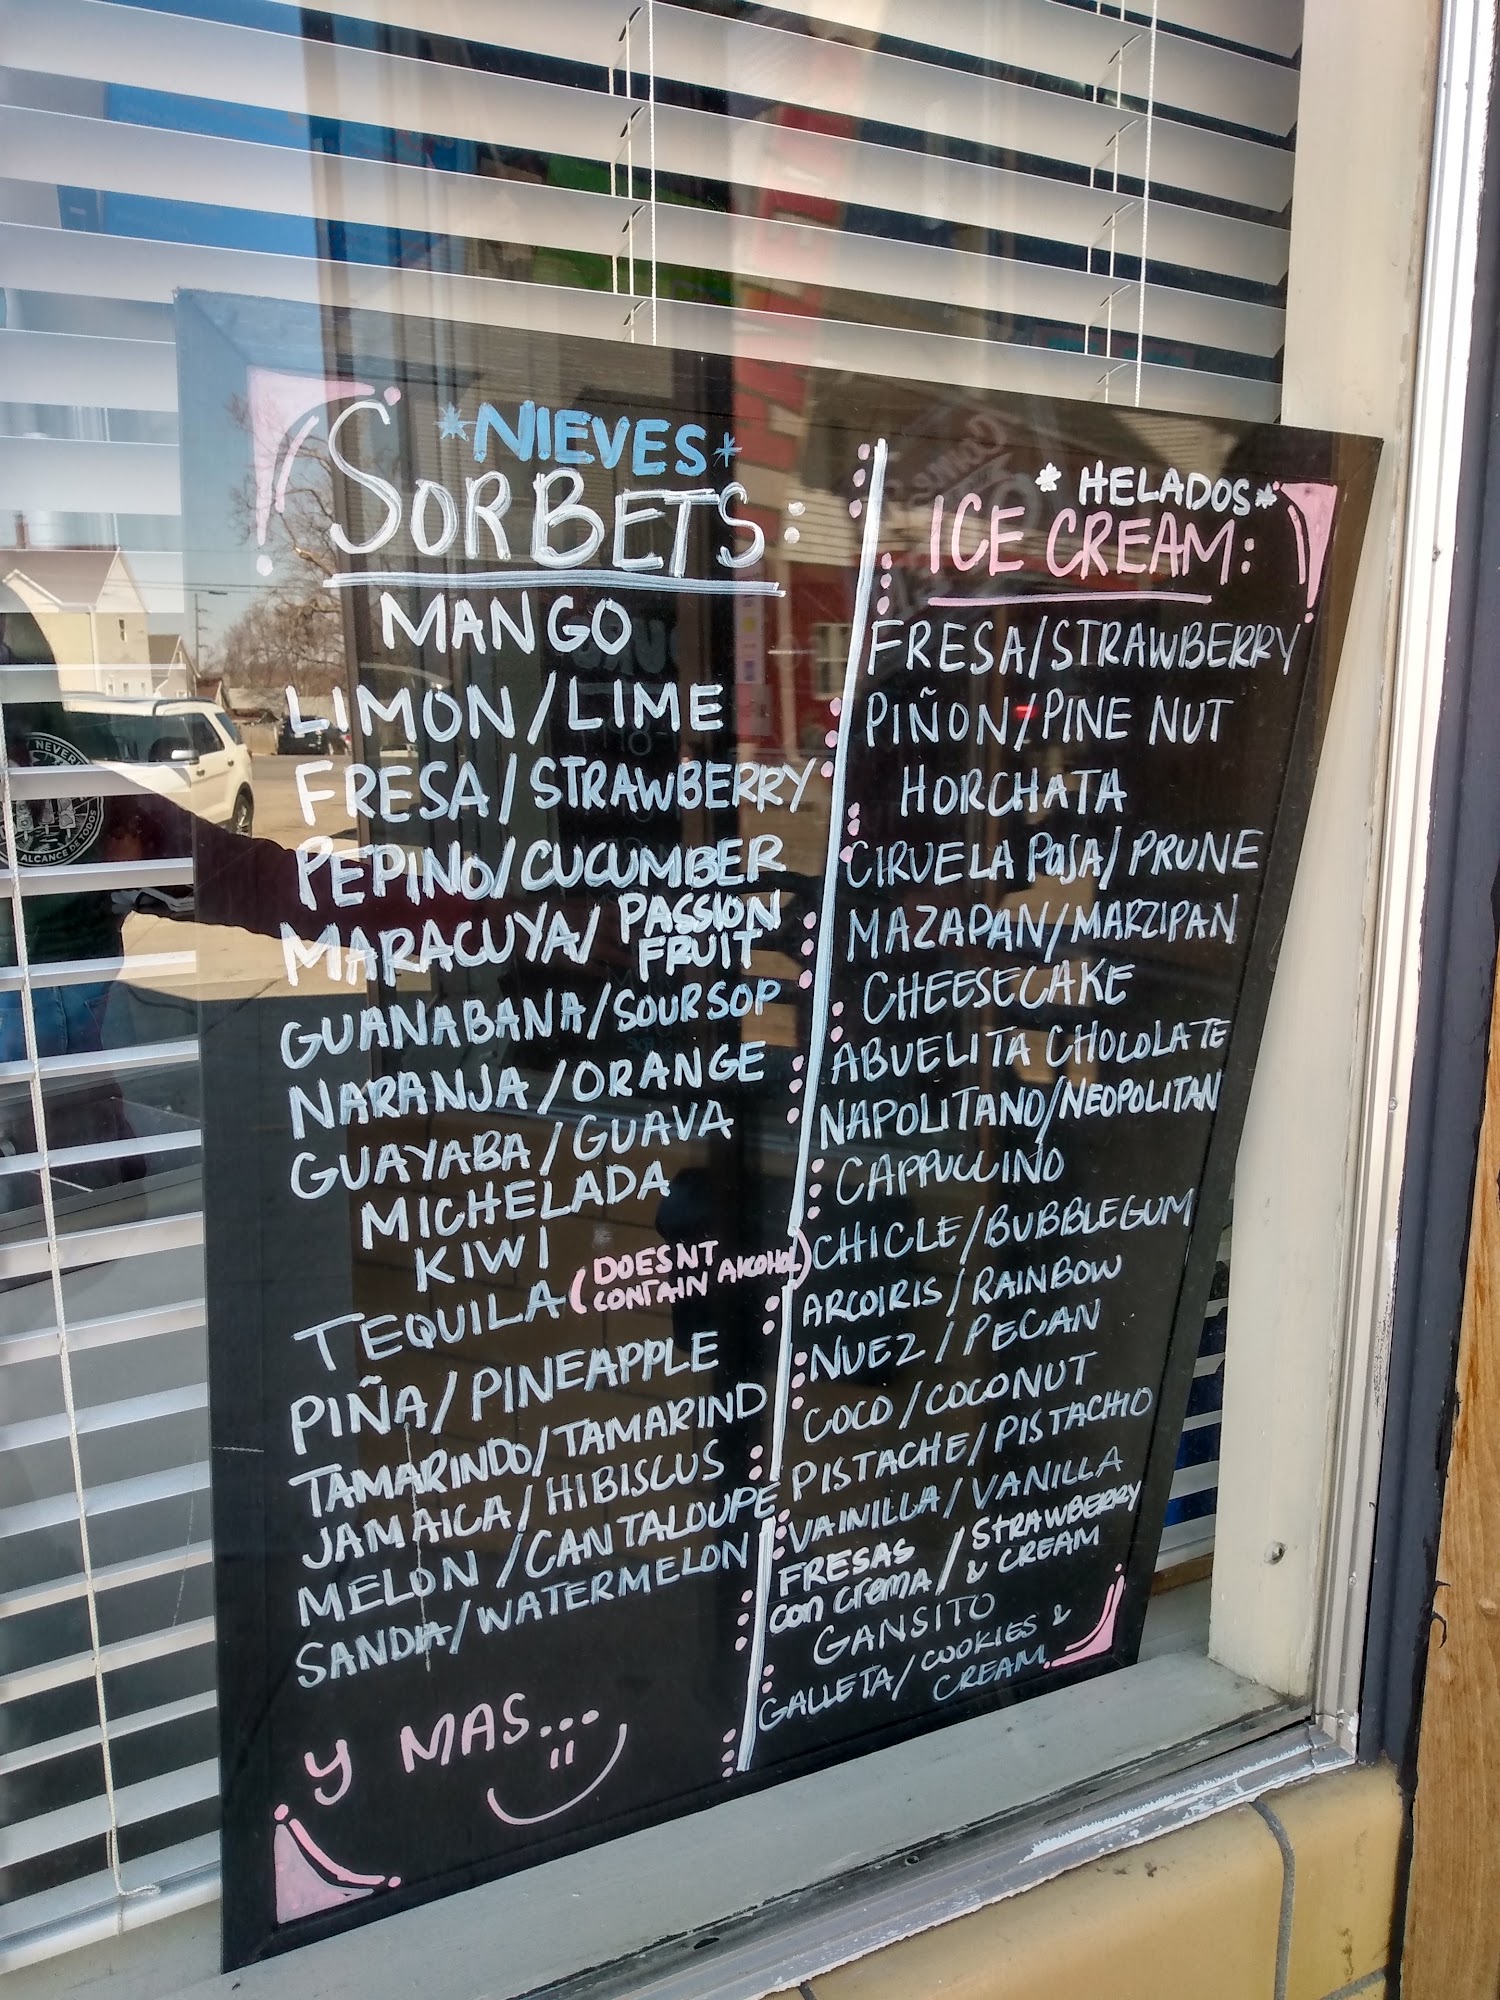 *NIEVES*
SORBETS:
MANGO
LIMON/LIME
FRESA/STRAWBERRY
PEPINO/CUCUMBER
MARACUYA/ PASSION
FRUIT
GUANABANA/SOURSOP
NARANJA/ORANGE
GUAYABA/GUAVA
MICHELADA
KIWI
TEQUILA (DOESNT
CONTAIN ALCOHOL)
PIÑA/PINEAPPLE
TAMARINDO/TAMARIND
JAMAICA/HIBISCUS
MELON/CANTALOUPE
SANDIA/WATERMELON
Y MAS...
* HELADOS*
ICE CREAM:
FRESA/STRAWBERRY
PIÑON/PINE NUT
HORCHATA
CIRUELA PASA/PRUNE
MAZAPAN/MARZIPAN
CHEESECAKE
ABUELITA CHOCOLATE
NAPOLITANO/NEOPOLITAN
CAPPUCCINO
CHICLE/BUBBLEGUM
ARCOIRIS/RAINBOW
NUEZ/PECAN
COCO/COCONUT
PISTACHE/PISTACHIO
VAINILLA/VANILLA
FRESAS / STRAWBERRY
con crema / & CREAM
GANSITO
GALLETA/COOKIES &
CREAM
NEVER
ALCANCE DE TODOS